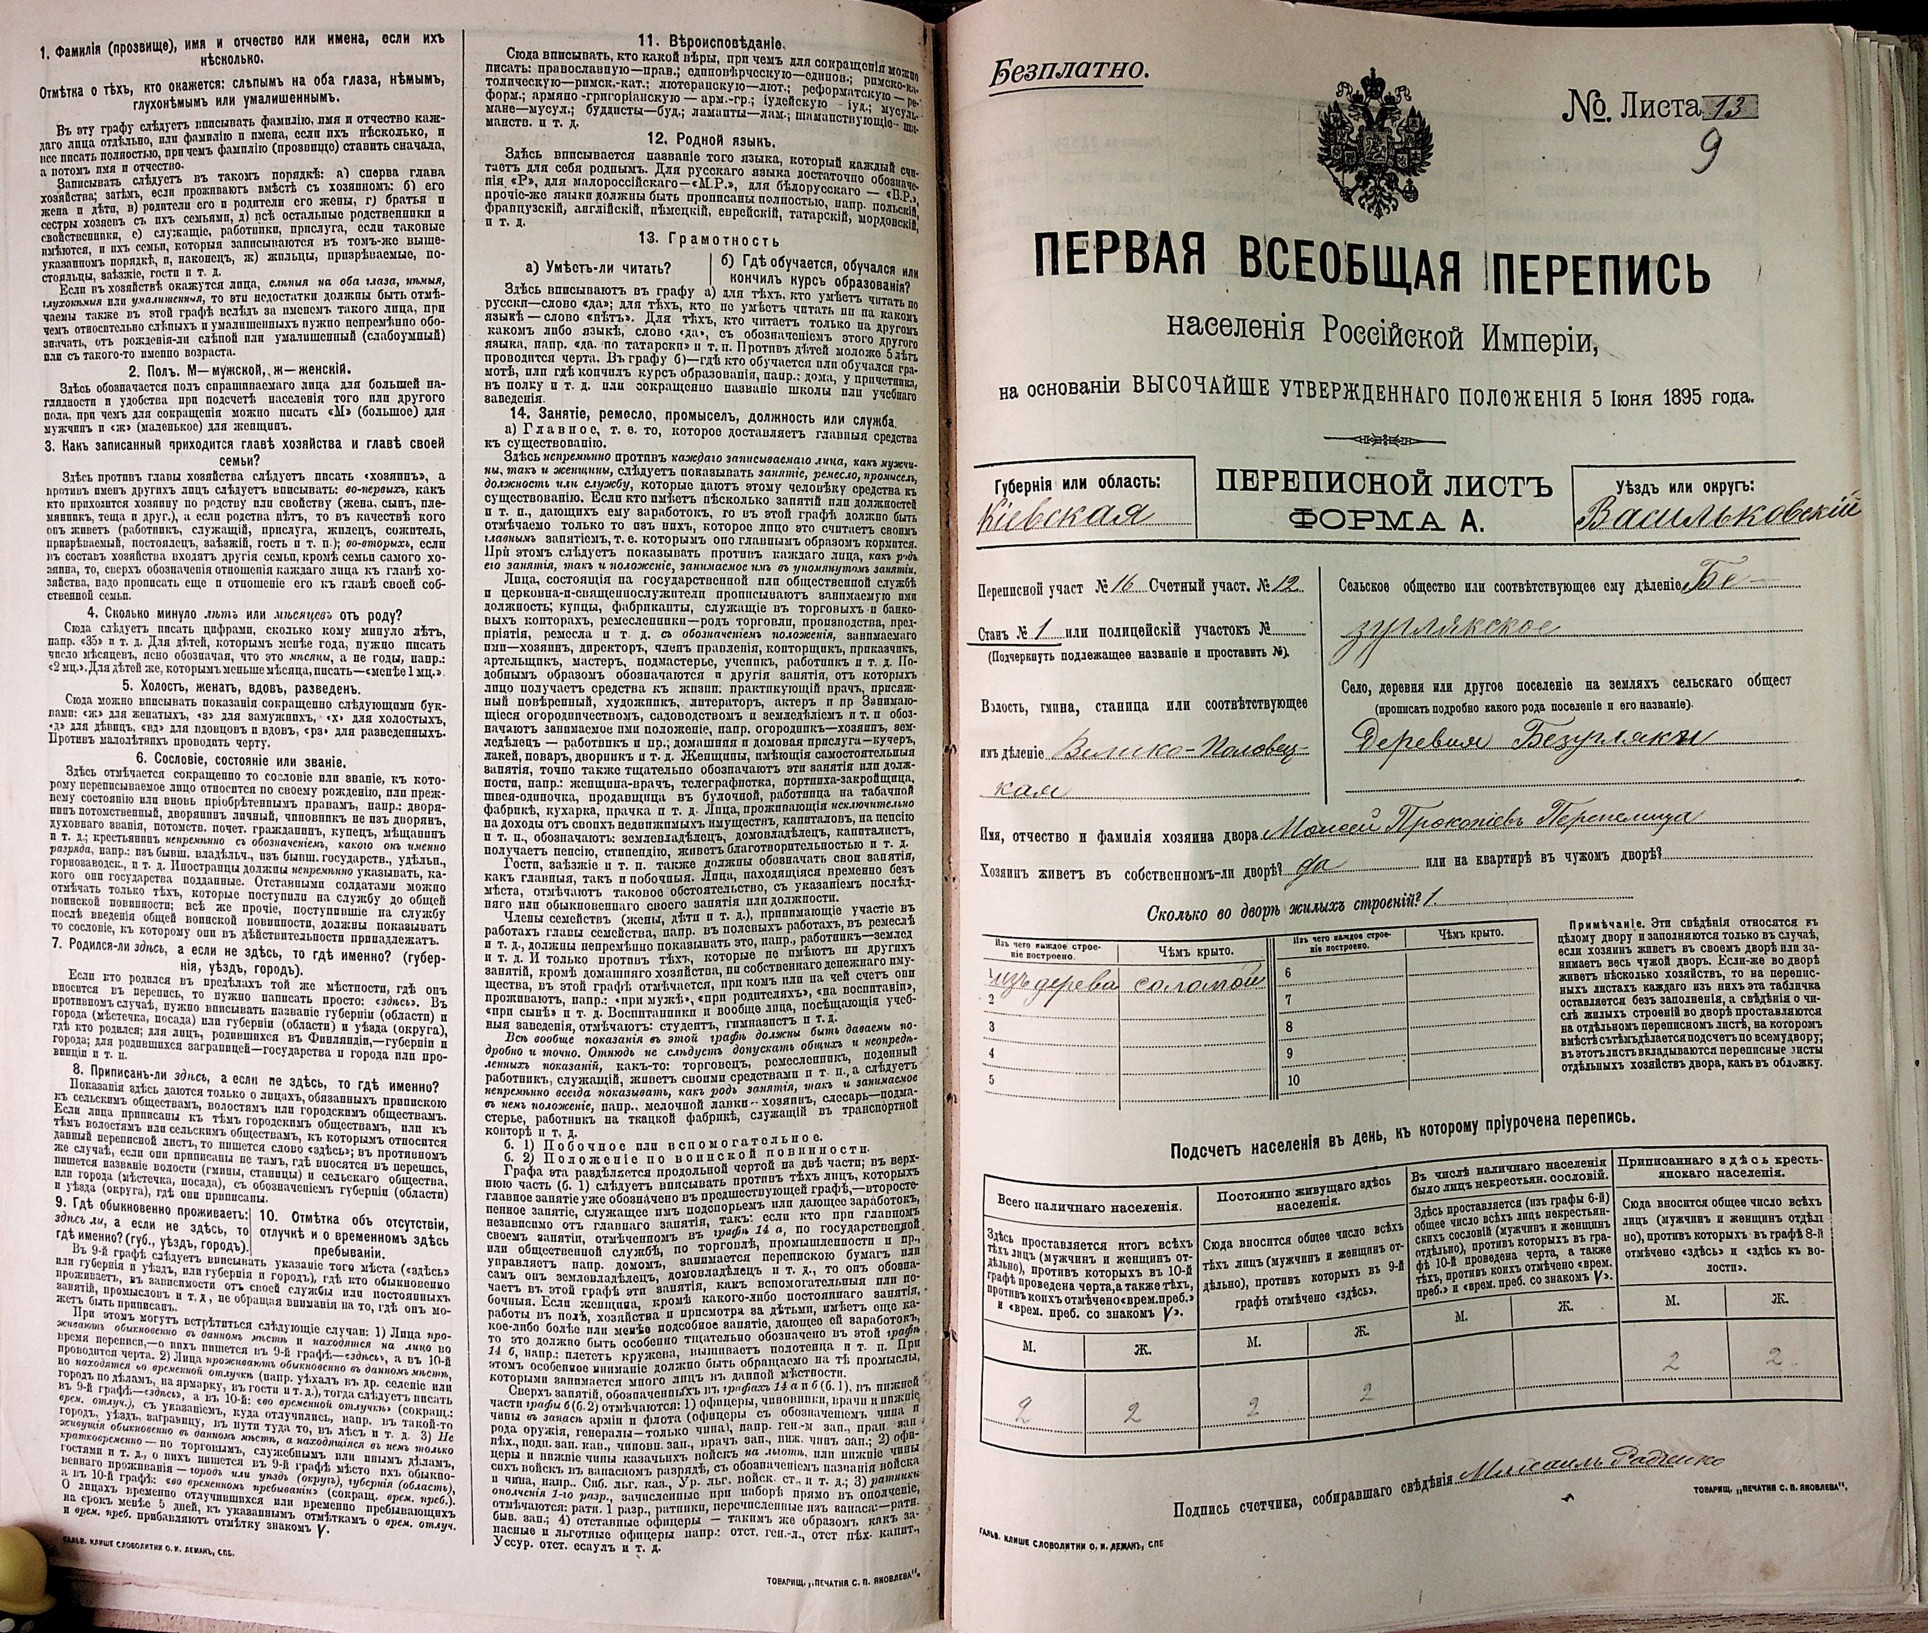 1. Фамилія (прозвище), имя и отчество или имена, если ихъ
нѣсколько.
Отмѣтка о тѣхъ, кто окажется: слѣпымъ на оба глаза, нѣмымъ,
глухонѣмымъ или умалишеннымъ.
Въ эту графу слѣдуетъ вписывать фамилію, имя и отчество каж-
даго лица отдѣльно, или фамилію и имена, если ихъ нѣсколько, и
все писать полностью, при чемъ фамилію (прозвище) ставить сначала,
а потомъ имя и отчество.
Записывать слѣдуетъ въ такомъ порядкѣ: а) сперва глава
хозяйства; затѣмъ, если проживаютъ вмѣстѣ съ хозяиномъ: б) его
жена и дѣти, в) родители его и родители его жены, г) братья и
сестры хозяевъ съ ихъ семьями, д) всѣ остальные родственники и
свойственники, е) служащіе, работники, прислуга, если таковые
имѣются, и ихъ семьи, которыя записываются въ томъ-же выше-
указанномъ порядкѣ, и, наконецъ, ж) жильцы, призрѣваемые, по-
стояльцы, заѣзжіе, гости и т. д.
Если въ хозяйствѣ окажутся лица, слѣпыя на оба глаза, нѣмыя,
глухонѣмыя или умалишенныя, то эти недостатки должны быть отмѣ-
чаемы также въ этой графѣ вслѣдъ за именемъ такого лица, при
чемъ относительно слѣпыхъ и умалишенныхъ нужно непремѣнно обо-
значать, отъ рожденія-ли слѣпой или умалишенный (слабоумный)
или съ такого-то именно возраста.
2. Полъ. М—мужской, ж—женскій.
Здѣсь обозначается полъ спрашиваемаго лица для большей на-
глядности и удобства при подсчетѣ населенія того или другого
пола, при чемъ для сокращенія можно писать «М» (большое) для
мужчинъ и «ж» (маленькое) для женщинъ.
3. Какъ записанный приходится главѣ хозяйства и главѣ своей
семьи?
Здѣсь противъ главы хозяйства слѣдуетъ писать «хозяинъ», а
противъ именъ другихъ лицъ слѣдуетъ вписывать: во-первыхъ, какъ
кто приходится хозяину по родству или свойству (жена, сынъ, пле-
мянникъ, теща и друг.), а если родства нѣтъ, то въ качествѣ кого
онъ живетъ (работникъ, служащій, прислуга, жилецъ, сожитель,
призрѣваемый, постоялецъ, заѣзжій, гость и т. п.); во-вторыхъ, если
въ составъ хозяйства входятъ другія семьи, кромѣ семьи самого хо-
зяина, то, сверхъ обозначенія отношенія каждаго лица къ главѣ хо-
зяйства, надо прописать еще и отношеніе его къ главѣ своей соб-
ственной семьи.
4. Сколько минуло лѣтъ или мѣсяцевъ отъ роду?
Сюда слѣдуетъ писать цифрами, сколько кому минуло лѣтъ,
напр. «35» и т. д. Для дѣтей, которымъ менѣе года, нужно писать
число мѣсяцевъ, ясно обозначая, что это мѣсяцы, а не годы, напр.:
«2 мц.». Для дѣтей же, которымъ меньше мѣсяца, писать—«менѣе 1 мц.».
5. Холостъ, женатъ, вдовъ, разведенъ.
Сюда можно вписывать показанія сокращенно слѣдующими бук-
вами: «ж» для женатыхъ, «з» для замужнихъ, «х» для холостыхъ,
«д» для дѣвицъ, «вд» для вдовцовъ и вдовъ, «рз» для разведенныхъ.
Противъ малолѣтнихъ проводить черту.
6. Сословіе, состояніе или званіе.
Здѣсь отмѣчается то сословіе или званіе, къ кото-
рому переписываемое лицо относится по своему рожденію, или преж-
нему состоянію или вновь пріобрѣтеннымъ правамъ, напр.: дворя-
нинъ потомственный, дворянинъ личный, чиновникъ не изъ дворянъ,
духовнаго званія, потомств. почет. гражданинъ, купецъ, мѣщанинъ
и т. д.; крестьянинъ непремѣнно съ обозначеніемъ, какого онъ именно
разряда, напр.: изъ бывш. владѣльч., изъ бывш. государств., удѣльн.,
горнозаводск. и т. д. Иностранцы должны непремѣнно указывать, ка-
кого они государства подданные. Отставными солдатами можно
отмѣчать только тѣхъ, которые поступили на службу до общей
воинской повинности; всѣ же прочіе, поступившіе на службу
послѣ введенія общей воинской повинности, должны показывать
то сословіе, къ которому они въ дѣйствительности принадлежатъ.
7. Родился-ли здѣсь, а если не здѣсь, то гдѣ именно? (губер-
нія, уѣздъ, городъ).
Если кто родился въ предѣлахъ той же мѣстности, гдѣ онъ
вносится въ перепись, то нужно написать просто: «здѣсь». Въ
противномъ случаѣ, нужно вписывать названіе губерніи (области) и
города (мѣстечка, посада) или губерніи (области) и уѣзда (округа),
гдѣ кто родился; для лицъ, родившихся въ Финляндіи,—губерніи и
города; для родившихся заграницей—государства и города или про-
винціи и т. п.
8. Приписанъ-ли здѣсь, а если не здѣсь, то гдѣ именно?
Показанія здѣсь даются только о лицахъ, обязанныхъ припискою
къ сельскимъ обществамъ, волостямъ или городскимъ обществамъ.
Если лица приписаны къ тѣмъ городскимъ обществамъ, или къ
тѣмъ волостямъ или сельскимъ обществамъ, къ которымъ относится
данный переписной листъ, то пишется слово «здѣсь»; въ противномъ
же случаѣ, если они приписаны не тамъ, гдѣ вносятся въ перепись,
пишется названіе волости (гмины, станицы) и сельскаго общества,
или города (мѣстечка, посада), съ обозначеніемъ губерніи (области)
и уѣзда (округа), гдѣ они приписаны.
9. Гдѣ обыкновенно проживаетъ:
здѣсь ли, а если не здѣсь, то
гдѣ именно? (губ., уѣздъ, городъ).
10. Отмѣтка объ отсутствіи,
отлучкѣ и о временномъ здѣсь
пребываніи.
Въ 9-й графѣ слѣдуетъ вписывать указаніе того мѣста («здѣсь»
или губернія и уѣздъ, или губернія и городъ), гдѣ кто обыкновенно
проживаетъ, въ зависимости отъ своей службы или постоянныхъ
занятій, промысловъ и т. д., не обращая вниманія на то, гдѣ онъ мо-
жетъ быть приписанъ.
При этомъ могутъ встрѣтиться слѣдующіе случаи: 1) Лица про-
живаютъ обыкновенно въ данномъ мѣстѣ и находятся на лицо во
время переписи,—о нихъ пишется въ 9-й графѣ—«здѣсь», а въ 10-й
проводится черта. 2) Лица проживаютъ обыкновенно въ данномъ мѣстѣ,
но находятся во временной отлучкѣ (напр. уѣхалъ въ др. селеніе или
городъ по дѣламъ, на ярмарку, въ гости и т. д.), тогда слѣдуетъ писать
въ 9-й графѣ—«здѣсь», а въ 10-й: «во временной отлучкѣ» (сокращ.:
врем. отлуч.), съ указаніемъ, куда отлучились, напр. въ такой-то
городъ, уѣздъ, заграницу, въ пути туда то, въ лѣсъ и т. д. 3) Не
живущія обыкновенно въ данномъ мѣстѣ, а находящіяся въ немъ только
кратковременно — по торговымъ, служебнымъ или инымъ дѣламъ,
гостями и т. д., о нихъ пишется въ 9-й графѣ мѣсто ихъ обыкно-
веннаго проживанія — городъ или уѣздъ (округъ), губернія (область),
а въ 10-й графѣ: «во временномъ пребываніи» (сокращ. врем. преб.).
О лицахъ временно отлучившихся или временно пребывающихъ
на срокъ менѣе 5 дней, къ указаннымъ отмѣткамъ о врем. отлуч.
и врем. преб. прибавляютъ отмѣтку знакомъ V.
ГАЛЬВ. КЛИШЕ СЛОВОЛИТНИ О. И. ЛЕМАНЪ, СПБ.
11. Вѣроисповѣданіе.
Сюда вписывать, кто какой вѣры, при чемъ для сокращенія можно
писать: православную—прав.; единовѣрческую—единов.; римско-ка-
толическую—римск.-кат.; лютеранскую—лют.; реформатскую—ре-
форм.; армяно-григоріанскую — арм.-гр.; іудейскую — іуд.; мусуль-
мане—мусул.; буддисты—буд.; ламаиты—лам.; шаманствующіе—ша-
манств. и т. д.
12. Родной языкъ.
Здѣсь вписывается названіе того языка, который каждый счи-
таетъ для себя роднымъ. Для русскаго языка достаточно обозначе-
нія «Р», для малороссійскаго—«М.Р.», для бѣлорусскаго — «Б.Р.»,
прочіе-же языки должны быть прописаны полностью, напр. польскій,
французскій, англійскій, нѣмецкій, еврейскій, татарскій, мордовскій,
и т. д.
13. Грамотность
а) Умѣетъ-ли читать?
б) Гдѣ обучается, обучался или
кончилъ курсъ образованія?
Здѣсь вписываютъ въ графу а) для тѣхъ, кто умѣетъ читать по
русски—слово «да»; для тѣхъ, кто не умѣетъ читать ни на какомъ
языкѣ—слово «нѣтъ». Для тѣхъ, кто читаетъ только на другомъ
какомъ либо языкѣ, слово «да», съ обозначеніемъ этого другого
языка, напр. «да. по татарски» и т. п. Противъ дѣтей моложе 5 лѣтъ
проводится черта. Въ графу б)—гдѣ кто обучается или обучался гра-
мотѣ, или гдѣ кончилъ курсъ образованія, напр.: дома, у причетника,
въ полку и т. д. или сокращенно названіе школы или учебнаго
заведенія.
14. Занятіе, ремесло, промыселъ, должность или служба.
а) Главное, т. е. то, которое доставляетъ главныя средства
къ существованію.
Здѣсь непремѣнно противъ каждаго записываемаго лица, какъ мужчи-
ны, такъ и женщины, слѣдуетъ показывать занятіе, ремесло, промыселъ,
должность или службу, которые даютъ этому человѣку средства къ
существованію. Если кто имѣетъ нѣсколько занятій или должностей
и т. п., дающихъ ему заработокъ, то въ этой графѣ должно быть
отмѣчаемо только то изъ нихъ, которое лицо это считаетъ своимъ
главнымъ занятіемъ, т. е. которымъ оно главнымъ образомъ кормится.
При этомъ слѣдуетъ показывать противъ каждаго лица, какъ родъ
его занятія, такъ и положеніе, занимаемое имъ въ упомянутомъ занятіи.
Лица, состоящія на государственной или общественной службѣ
и церковно-и-священнослужители прописываютъ занимаемую ими
должность; купцы, фабриканты, служащіе въ торговыхъ и банко-
выхъ конторахъ, ремесленники—родъ торговли, производства, пред-
пріятія, ремесла и т. д. съ обозначеніемъ положенія, занимаемаго
ими—хозяинъ, директоръ, членъ правленія, конторщикъ, приказчикъ,
артельщикъ, мастеръ, подмастерье, ученикъ, работникъ и т. д. По-
добнымъ образомъ обозначаются и другія занятія, отъ которыхъ
лицо получаетъ средства къ жизни: практикующій врачъ, присяж-
ный повѣренный, художникъ, литераторъ, актеръ и пр Занимаю-
щіеся огородничествомъ, садоводствомъ и земледѣліемъ и т. п обоз-
начаютъ занимаемое ими положеніе, напр. огородникъ—хозяинъ, зем-
ледѣлецъ — работникъ и пр.; домашняя и домовая прислуга—кучеръ,
лакей, поваръ, дворникъ и т. д. Женщины, имѣющія самостоятельныя
занятія, точно также тщательно обозначаютъ эти занятія или долж-
ности, напр.: женщина-врачъ, телеграфистка, портниха-закройщица,
швея-одиночка, продавщица въ булочной, работница на табачной
фабрикѣ, кухарка, прачка и т. д. Лица, проживающія исключительно
на доходы отъ своихъ недвижимыхъ имуществъ, капиталовъ, на пенсію
и т. п., обозначаютъ: землевладѣлецъ, домовладѣлецъ, капиталистъ,
получаетъ пенсію, стипендію, живетъ благотворительностью и т. д.
Гости, заѣзжіе и т. п. также должны обозначать свои занятія,
какъ главныя, такъ и побочныя. Лица, находящіяся временно безъ
мѣста, отмѣчаютъ таковое обстоятельство, съ указаніемъ послѣд-
няго или обыкновеннаго своего занятія или должности.
Члены семействъ (жены, дѣти и т. д.), принимающіе участіе въ
работахъ главы семейства, напр. въ полевыхъ работахъ, въ ремеслѣ
и т. д., должны непремѣнно показывать это, напр., работникъ—землед
и т. д. И только противъ тѣхъ, которые не имѣютъ ни другихъ
занятій, кромѣ домашняго хозяйства, ни собственнаго денежнаго иму-
щества, въ этой графѣ отмѣчается, при комъ или на чей счетъ они
проживаютъ, напр.: «при мужѣ», «при родителяхъ», «на воспитаніи»,
«при сынѣ» и т. д. Воспитанники и вообще лица, посѣщающія учеб-
ныя заведенія, отмѣчаютъ: студентъ, гимназистъ и т. д.
Всѣ вообще показанія въ этой графѣ должны быть даваемы по-
дробно и точно. Отнюдь не слѣдуетъ допускать общихъ и неопредѣ-
ленныхъ показаній, какъ-то: торговецъ, ремесленникъ, поденный
работникъ, служащій, живетъ своими средствами и т. п., а слѣдуетъ
непремѣнно всегда показывать, какъ родъ занятія, такъ и занимаемое
въ немъ положеніе, напр., мелочной лавки—хозяинъ, слесарь—подма-
стерье, работникъ на ткацкой фабрикѣ, служащій въ транспортной
конторѣ и т. д.
б. 1) Побочное или вспомогательное.
б. 2) Положеніе по воинской повинности.
Графа эта раздѣляется продольной чертой на двѣ части; въ верх-
нюю часть (б. 1) слѣдуетъ вписывать противъ тѣхъ лицъ, которыхъ
главное занятіе уже обозначено въ предшествующей графѣ,—второсте-
пенное занятіе, служащее имъ подспорьемъ или дающее заработокъ,
независимо отъ главнаго занятія, такъ: если кто при главномъ
своемъ занятіи, отмѣченномъ въ графѣ 14 а, по государственной
или общественной службѣ, по торговлѣ, промышленности и пр.,
управляетъ напр. домомъ, занимается перепискою бумагъ или
самъ онъ землевладѣлецъ, домовладѣлецъ и т. д., то онъ обозна-
чаетъ въ этой графѣ эти занятія, какъ вспомогательныя или по-
бочныя. Если женщина, кромѣ какого-либо постояннаго занятія,
работы въ полѣ, хозяйства и присмотра за дѣтьми, имѣетъ еще ка-
кое-либо болѣе или менѣе подсобное занятіе, дающее ей заработокъ,
то это должно быть особенно тщательно обозначено въ этой графѣ
14 б, напр.: плететъ кружева, вышиваетъ полотенца и т. п. При
этомъ особенное вниманіе должно быть обращаемо на тѣ промыслы,
которыми занимается много лицъ въ данной мѣстности.
Сверхъ занятій, обозначенныхъ въ графахъ 14 а и б (б. 1), въ нижней
части графы б (б. 2) отмѣчаются: 1) офицеры, чиновники, врачи и нижніе
чины въ запасѣ арміи и флота (офицеры съ обозначеніемъ чина и
рода оружія, генералы—только чина), напр. ген.-м зап., прап. зап
пѣх., подп. зап. кав., чиновн. зап., врачъ зап., ниж. чинъ зап.; 2) офи-
церы и нижніе чины казачьихъ войскъ на льготѣ, или нижніе чины
сихъ войскъ въ запасномъ разрядѣ, съ обозначеніемъ названія войска
и чина, напр., Сиб. льг. каз., Ур. льг. войск. ст., и т. д.; 3) ратники
ополченія 1-го разр., зачисленные при наборѣ прямо въ ополченіе,
отмѣчаются: ратн. 1 разр., ратники, перечисленные изъ запаса:—ратн.
быв. зап.; 4) отставные офицеры — такимъ же образомъ какъ за-
пасные и льготные офицеры напр.: отст. ген.-л., отст пѣх. капит.,
Уссур. отст. есаулъ и т. д.
ТОВАРИЩ. „ПЕЧАТНЯ С. П. ЯКОВЛЕВА".
Безплатно.
№ Листа 13
9
ПЕРВАЯ ВСЕОБЩАЯ ПЕРЕПИСЬ
населенія Россійской Имперіи,
на основаніи ВЫСОЧАЙШЕ УТВЕРЖДЕННАГО ПОЛОЖЕНІЯ 5 Іюня 1895 года.
Губернія или область:
Кіевская
ПЕРЕПИСНОЙ ЛИСТЪ
ФОРМА А.
Уѣздъ или округъ:
Васильковскій
Переписной участ № 16 Счетный участ. № 12
Станъ № 1 или полицейскій участокъ №
(Подчеркнуть подлежащее названіе и проставить №).
Волость, гмина, станица или соотвѣтствующее
имъ дѣленіе Велико-Половец-
кая
Сельское общество или соотвѣтствующее ему дѣленіе Бе-
зуглякское
Село, деревня или другое поселеніе на земляхъ сельскаго общест
(прописать подробно какого рода поселеніе и его названіе).
Деревня Безугляки
Имя, отчество и фамилія хозяина двора Моисей Прокопіевъ Перепелица
Хозяинъ живетъ въ собственномъ-ли дворѣ? да или на квартирѣ въ чужомъ дворѣ?
Сколько во дворѣ жилыхъ строеній? 1.
Изъ чего каждое строе-
ніе построено.
Чѣмъ крыто.
Изъ чего каждое строе-
ніе построено.
Чѣмъ крыто.
1 изъ дерева соломой
6
2
7
3
8
4
9
5
10
Примѣчаніе. Эти свѣдѣнія относятся къ
цѣлому двору и заполняются только въ случаѣ,
если хозяинъ живетъ въ своемъ дворѣ или за-
нимаетъ весь чужой дворъ. Если-же во дворѣ
живетъ нѣсколько хозяйствъ, то на перепис-
ныхъ листахъ каждаго изъ нихъ эта табличка
оставляется безъ заполненія, а свѣдѣнія о чи-
слѣ жилыхъ строеній во дворѣ проставляются
на отдѣльномъ переписномъ листѣ, на которомъ
вмѣстѣ съ тѣмъ дѣлается подсчетъ по всему двору;
въ этотъ листъ вкладываются переписные листы
отдѣльныхъ хозяйствъ двора, какъ въ обложку.
Подсчетъ населенія въ день, къ которому пріурочена перепись.
Всего наличнаго населенія.
Здѣсь проставляется итогъ всѣхъ
тѣхъ лицъ (мужчинъ и женщинъ от-
дѣльно), противъ которыхъ въ 10-й
графѣ проведена черта, а также тѣхъ,
противъ коихъ отмѣчено «врем. преб.»
и «врем. преб. со знакомъ V».
М. Ж.
2 2
Постоянно живущаго здѣсь
населенія.
Сюда вносится общее число всѣхъ
тѣхъ лицъ (мужчинъ и женщинъ от-
дѣльно), противъ которыхъ въ 9-й
графѣ отмѣчено «здѣсь».
М. Ж.
2 2
Въ числѣ наличнаго населенія
было лицъ некрестьян. сословій.
Здѣсь проставляется (изъ графы 6-й)
общее число всѣхъ лицъ некрестьян-
скихъ сословій (мужчинъ и женщинъ
отдѣльно), противъ которыхъ въ гра-
фѣ 10-й проведена черта, а также
тѣхъ, противъ коихъ отмѣчено «врем.
преб.» и «врем. преб. со знакомъ V».
М. Ж.
Приписаннаго здѣсь кресть-
янскаго населенія.
Сюда вносится общее число всѣхъ
лицъ (мужчинъ и женщинъ отдѣл
но), противъ которыхъ въ графѣ 8-й
отмѣчено «здѣсь» и «здѣсь къ во-
лости».
М. Ж.
2 2
Подпись счетчика, собиравшаго свѣдѣнія Мисаилъ Радченко
ТОВАРИЩ. „ПЕЧАТНЯ С. П. ЯКОВЛЕВА".
ГАЛЬВ. КЛИШЕ СЛОВОЛИТНИ О. И. ЛЕМАНЪ, СПБ